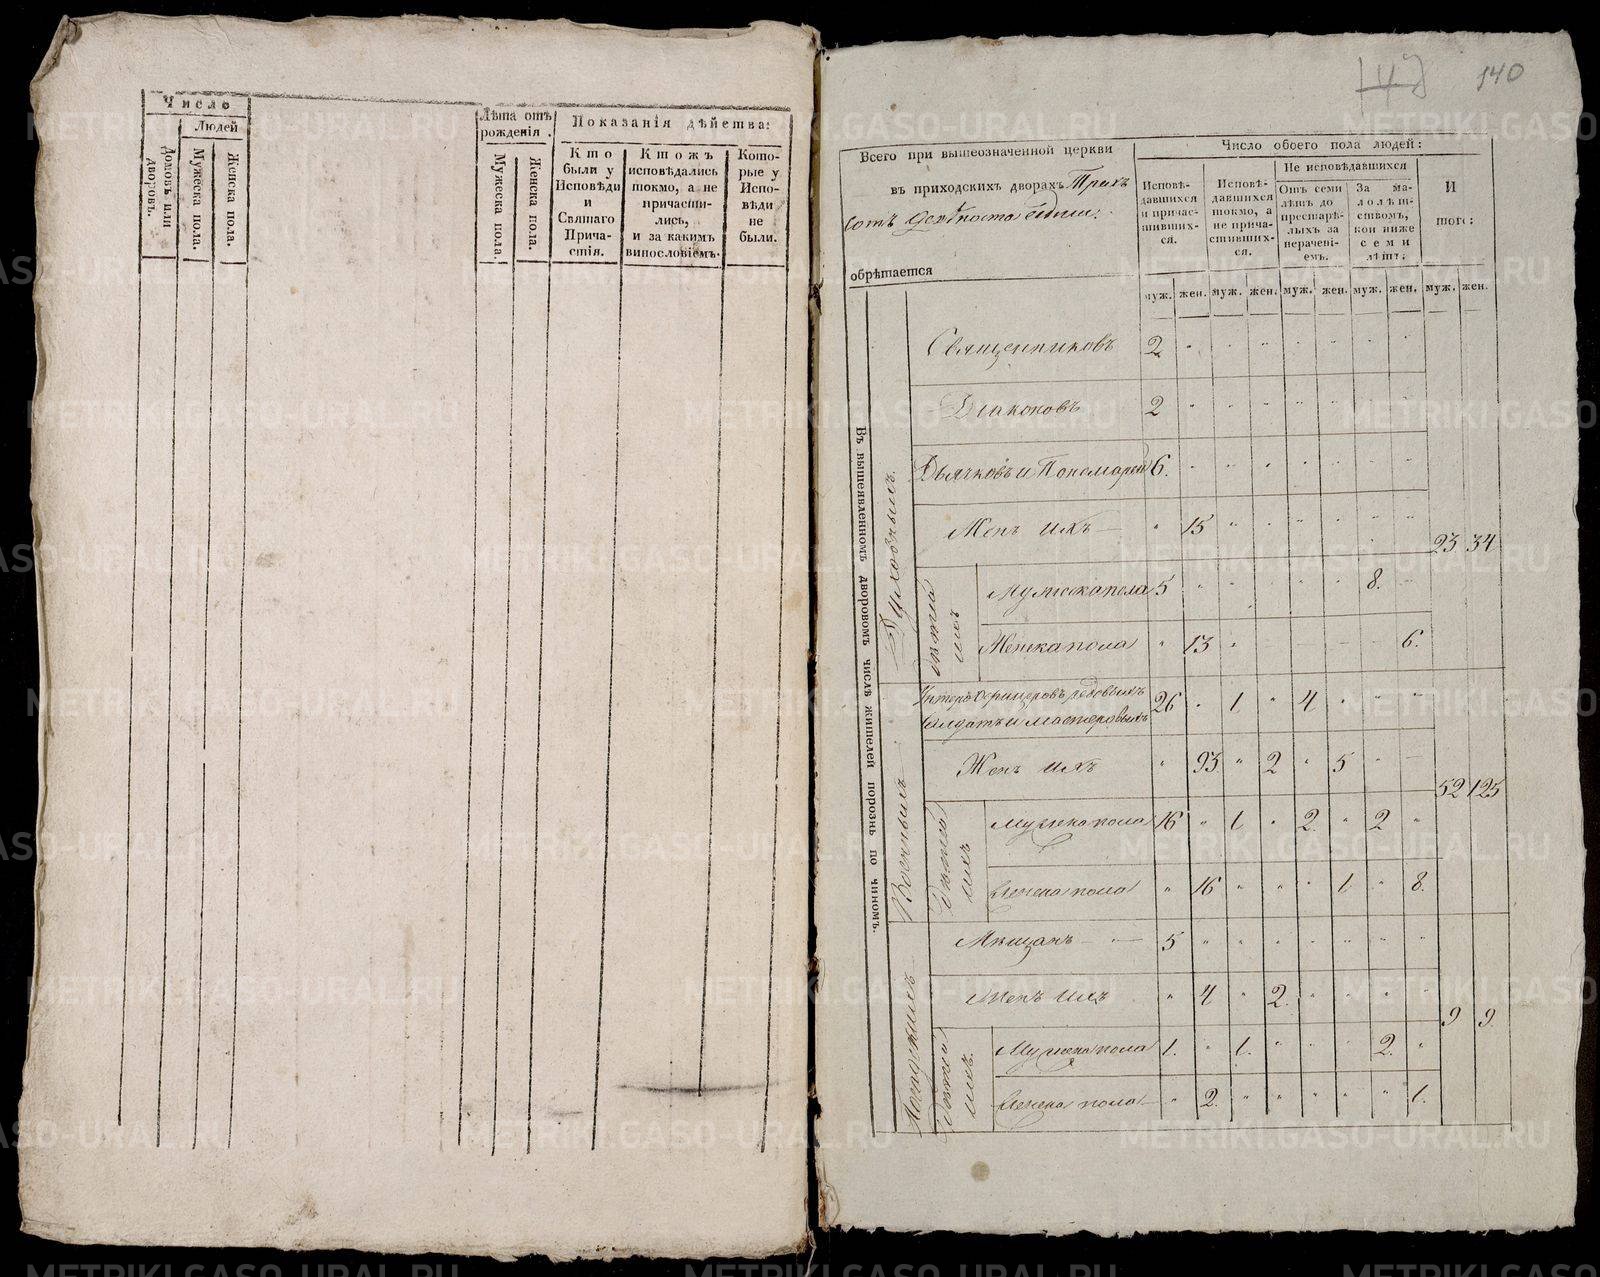 Число
Людей
Домовъ или дворовъ.
Мужеска пола.
Женска пола.
Лѣта отъ рожденія.
Мужеска пола.
Женска пола.
Показанія дѣйства:
Кто были у Исповѣди и Святаго Прича-стія.
Ктожъ исповѣдались токмо, а не причасти-лись, и за какимъ винословіемъ.
Кото-рые у Испо-вѣди не были.
140
Всего при вышеозначенной церкви
въ приходскихъ дворахъ Трехъ
сотъ девяноста
обрѣтается
Число обоего пола людей:
Исповѣ-давшихся и причас-тивших-ся.
Исповѣ-давшихся токмо, а не прича-стивших-ся.
Не исповѣдавшихся
Отъ семи лѣтъ до престарѣ-лыхъ за нерачені-емъ.
За ма-лолѣт-ствомъ, кои ниже семи лѣтъ:
И того:
муж. жен. муж. жен. муж. жен. муж. жен. муж. жен.
Въ вышеявленномъ дворовомъ числѣ жителей порознь по чиномъ.
Духовныхъ
Священниковъ 2 " " " " " " "
Діаконовъ 2 " " " " " " "
Дьячковъ и Пономарей 6. " " " " " " "
Женъ ихъ — " 15 " " " " " "
23 34
дѣтей ихъ
Мужеска пола 5 " " " " " 8. "
Женска пола " 13 " 6.
Военныхъ
Унтеръ офицеровъ рядовыхъ
Салдатъ и мастеровыхъ 26 " 1 " 4 " " "
Женъ ихъ " 93 " 2 " 5 " —
52 125
Дѣтей ихъ
Мужска пола 16 " 1 " 2. " 2 "
Женска пола " 16 " " " 1 " 8.
Мѣщанъ — " — 5 " " " " " " "
Женъ ихъ " 4 " 2. " " " "
9 9
Дѣтей ихъ
Мужска пола 1. " 1. " " " 2. "
Женска пола — " 2. " " " " " 1.
METRIKI.GASO-URAL.RU